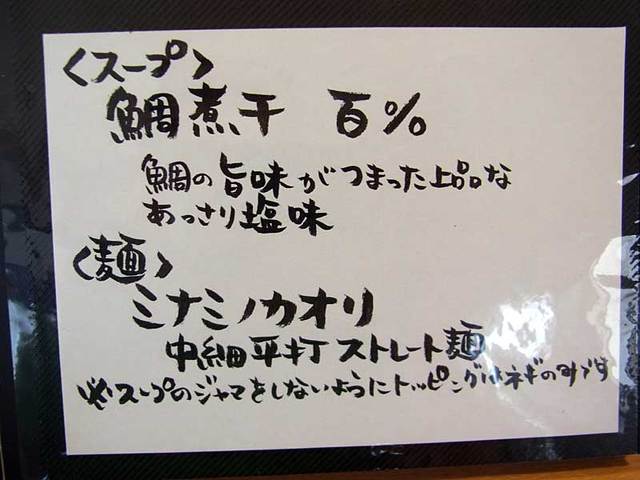 〈スープ〉
鯛煮干 百%
鯛の旨味がつまった上品な
あっさり塩味
〈麺〉
ミナミノカオリ
中細平打ストレート麺
※スープのジャマをしないようにトッピングはネギのみです